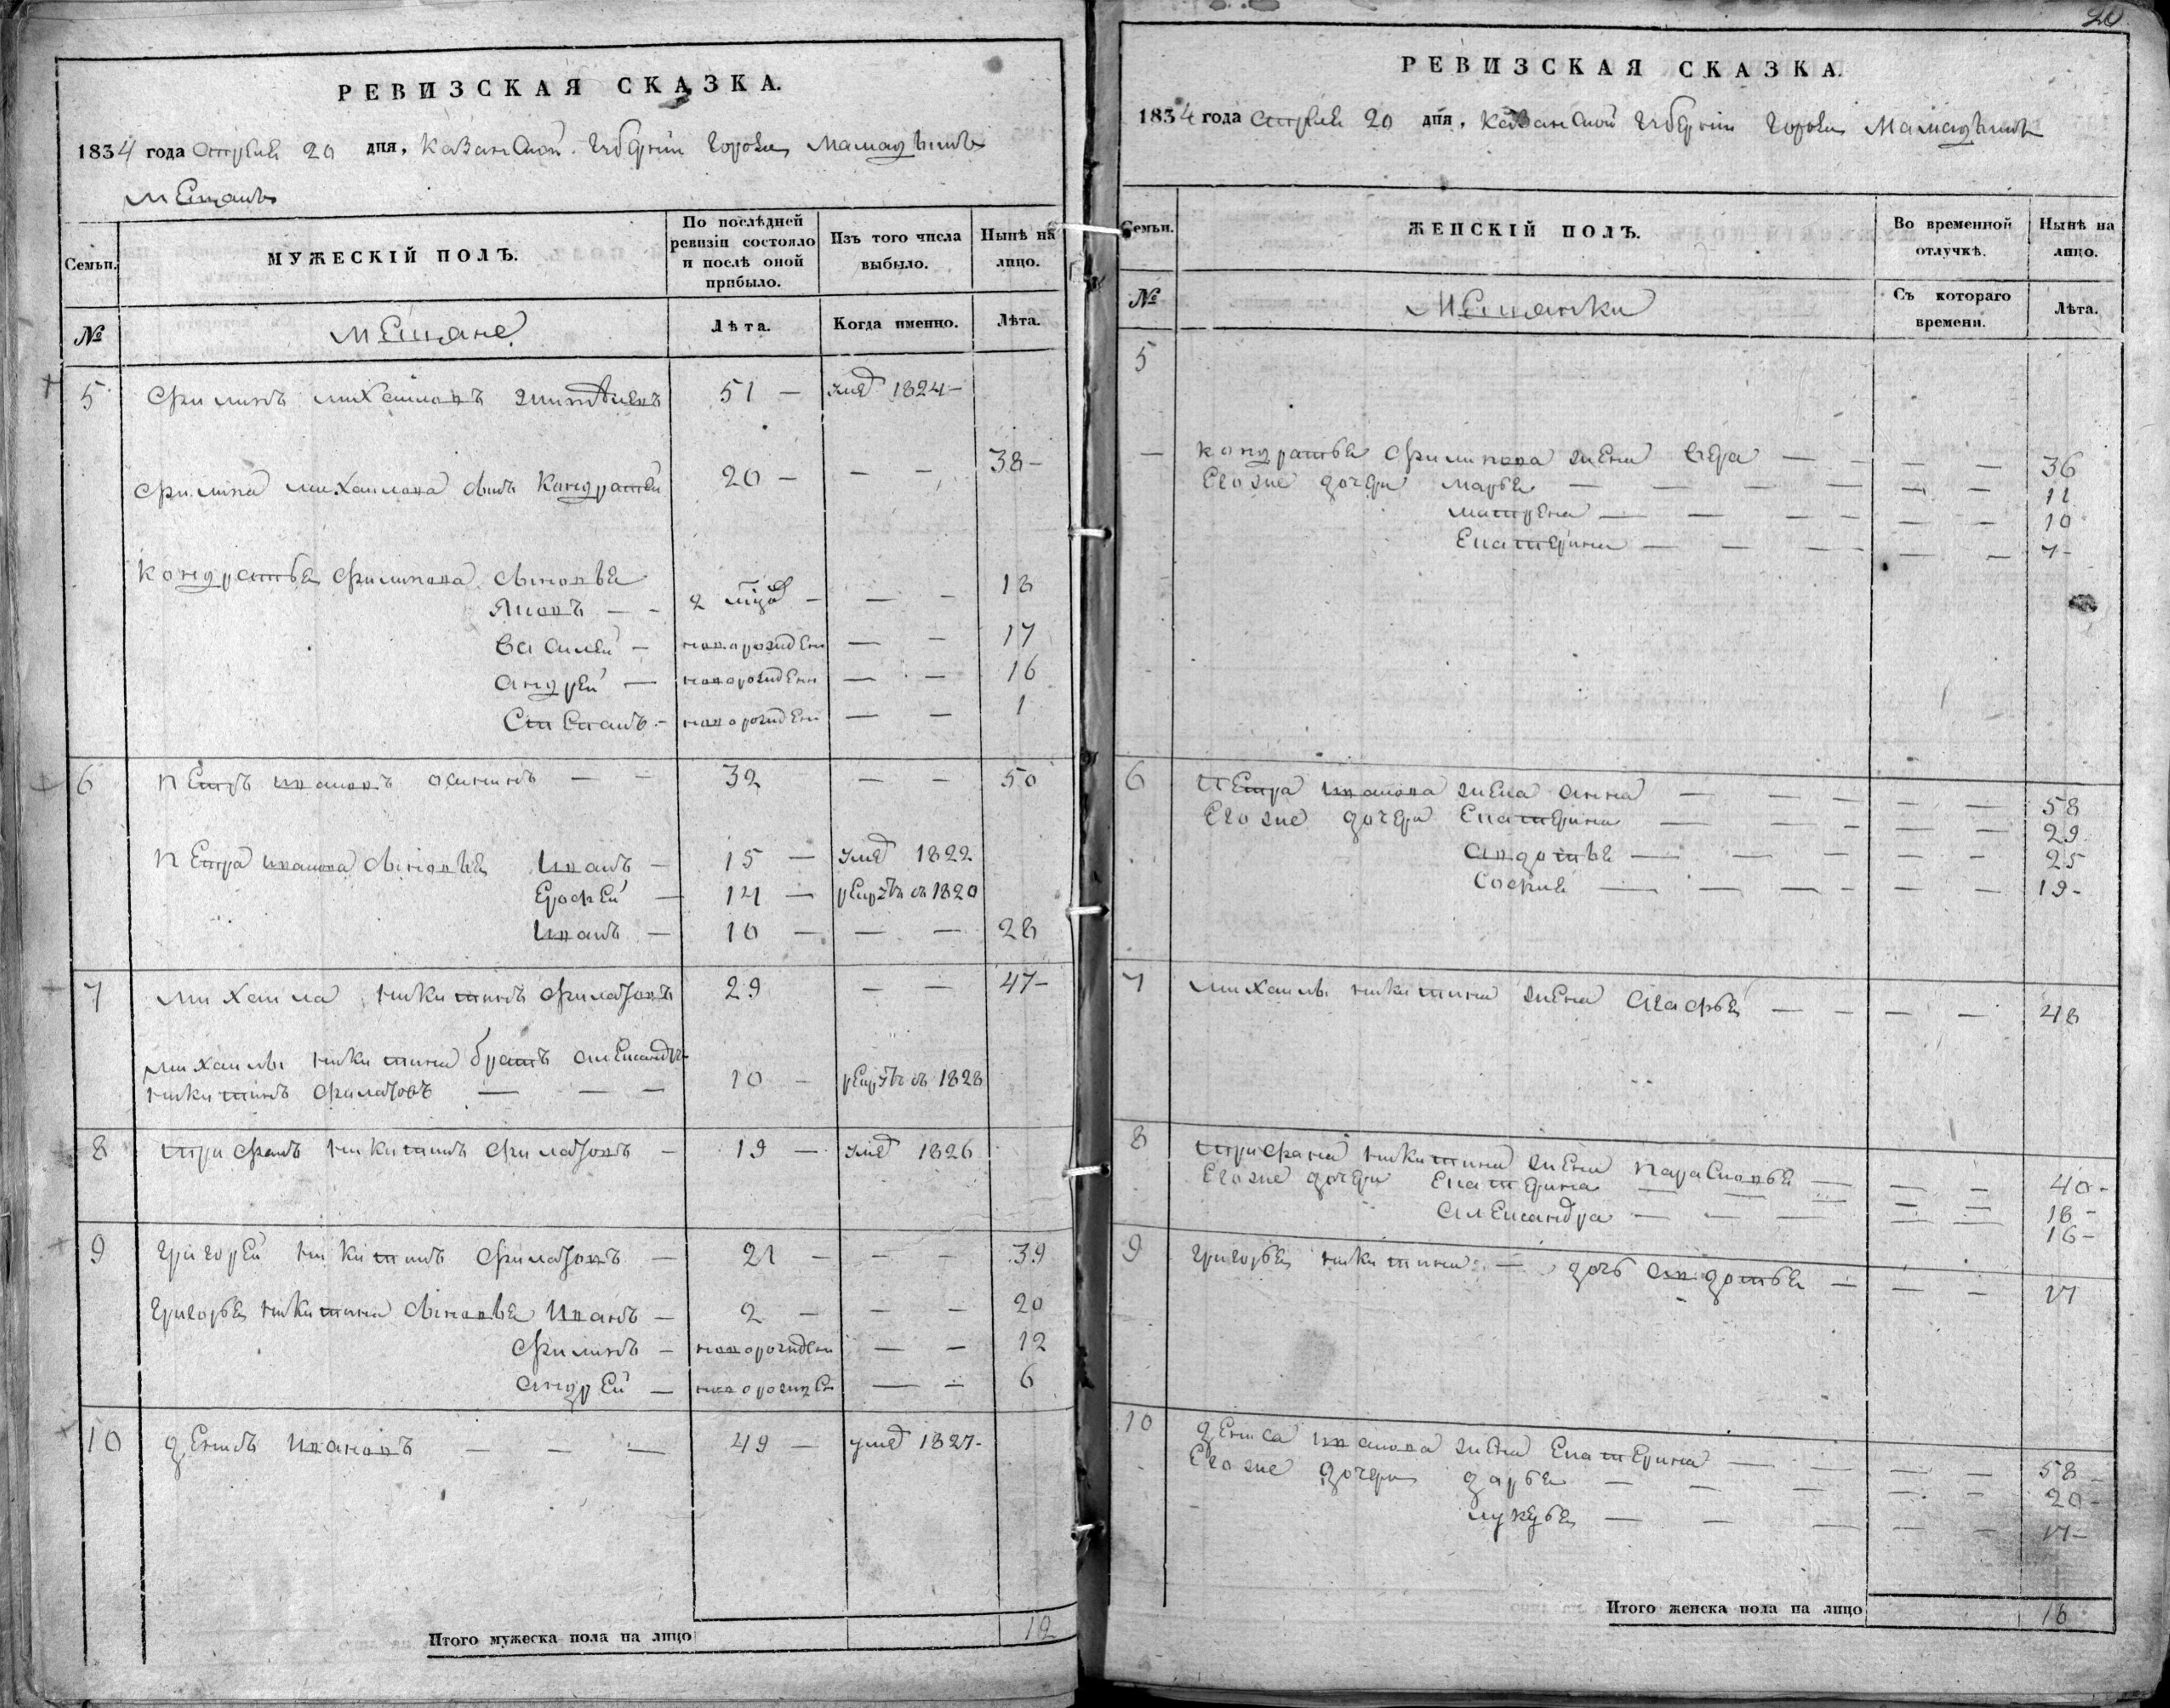 РЕВИЗСКАЯ СКАЗКА.
1834 года Апреля 20 дня, Казанской Губернии города Мамадыша
мещанъ
Семьи.
МУЖЕСКІЙ ПОЛЪ.
По послѣдней ревизіи состояло и послѣ оной прибыло.
Изъ того числа выбыло.
Нынѣ на лицо.
№
мещане
Лѣта.
Когда именно.
Лѣта.
5 Филипъ михайловъ 51 — умеръ 1824 —
Филипа михайлова сынъ Кондратей 20 — — — 38 —
Кондратья Филипова сыновья
Яковъ — — 2 — — 18
Василей — новорожден — — 17
Андрей — новорожден — — 16
Степанъ — новорожден — — 1
6 Петръ ивановъ осипъ — — 32 — — 50
Петра иванова сыновья Иванъ — 15 — умер 1822
Ерофей — 14 — рекрутъ въ 1820
Иванъ — 10 — — — 28
7 михаила никитинъ филатовъ 29 — — 47 —
михаилы никитина братъ александръ
никитинъ филатовъ — — — 10 — рекрутъ въ 1828
8 трифанъ никитинъ филатовъ — 19 — умер 1826
9 григорей никитинъ филатовъ — 21 — — — 39
григорья никитина сыновья Иванъ — 2 — — — 20
филипъ — новорожден — — 12
андрей — новорожден — — 6
10 денисъ ивановъ — — — 49 — умер 1827 —
Итого мужеска пола на лицо 12
20
РЕВИЗСКАЯ СКАЗКА.
1834 года Апреля 20 дня, Казанской Губернии города Мамадыша
Семьи.
ЖЕНСКІЙ ПОЛЪ.
Во временной отлучкѣ.
Нынѣ на лицо.
№
мещанки
Съ котораго времени.
Лѣта.
5
— кондратья филипова жена вера — — — — 36
Его же дочери марья — — — — — — 12
матрена — — — — — — 10
Екатерина — — — — — — 7 —
6 Петра иванова жена анна — — — — — 58
Его же дочери Екатерина — — — — — 29
авдотья — — — — — — 25
Софья — — — — — — 19 —
7 михаилы никитина жена агафья — — — — 48
8 трифана никитина жена парасковья — — — 40 —
Его же дочери Екатерина — — — — — 18 —
александра — — — — — 16 —
9 григорья никитина — дочь авдотья — — — 17
10 дениса иванова жена Екатерина — — — — 58 —
Его же дочери дарья — — — — — 20 —
лукерья — — — — — 17 —
Итого женска пола на лицо 16